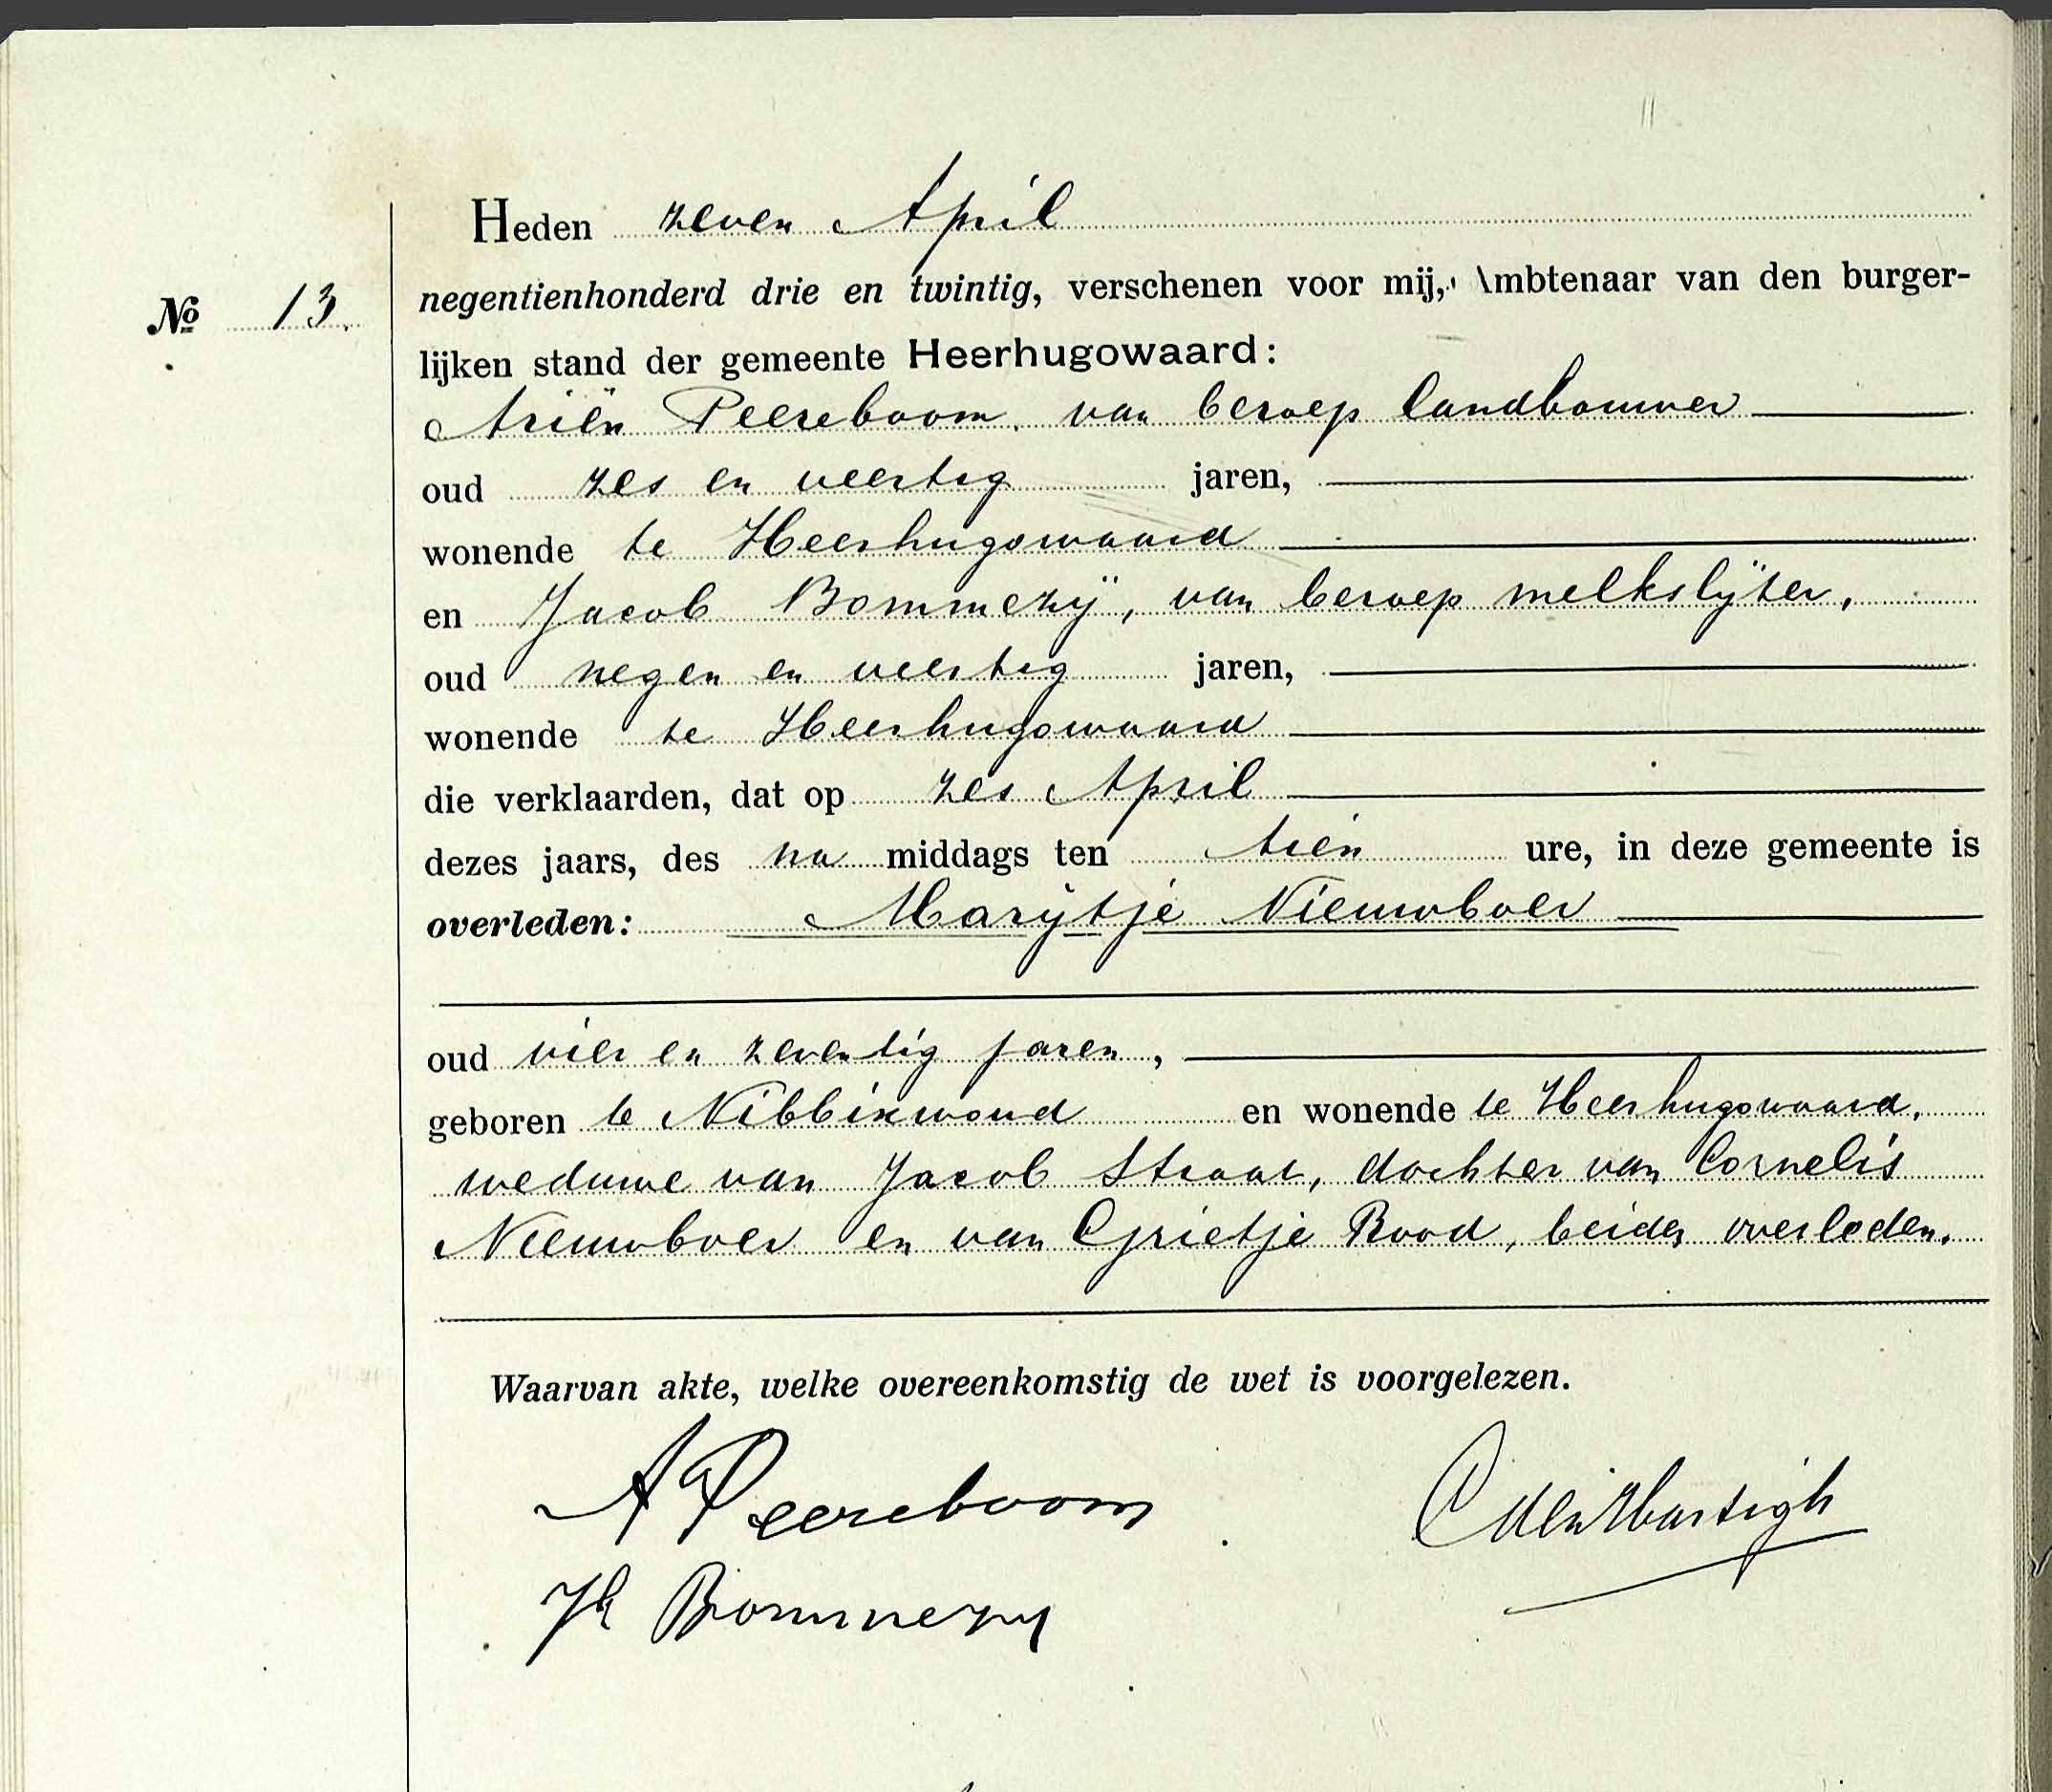 Heden zeven April
No 13.
negentienhonderd drie en twintig, verschenen voor mij, Ambtenaar van den burger-
lijken stand der gemeente Heerhugowaard:
Ariën Peereboom van beroep landbouwer
oud zes en veertig jaren,
wonende te Heerhugowaard
en Jacob Bommezij, van beroep melkslijter,
oud negen en veertig jaren,
wonende te Heerhugowaard
die verklaarden, dat op zes April
dezes jaars, des na middags ten tien ure, in deze gemeente is
overleden: Marijtje Nieuwboer
oud vier en zeventig jaren,
geboren te Nibbixwoud en wonende te Heerhugowaard,
weduwe van Jacob Straat, dochter van Cornelis
Nieuwboer en van Grietje Rood, beiden overleden.
Waarvan akte, welke overeenkomstig de wet is voorgelezen.
A Peereboom
Jb Bommezij